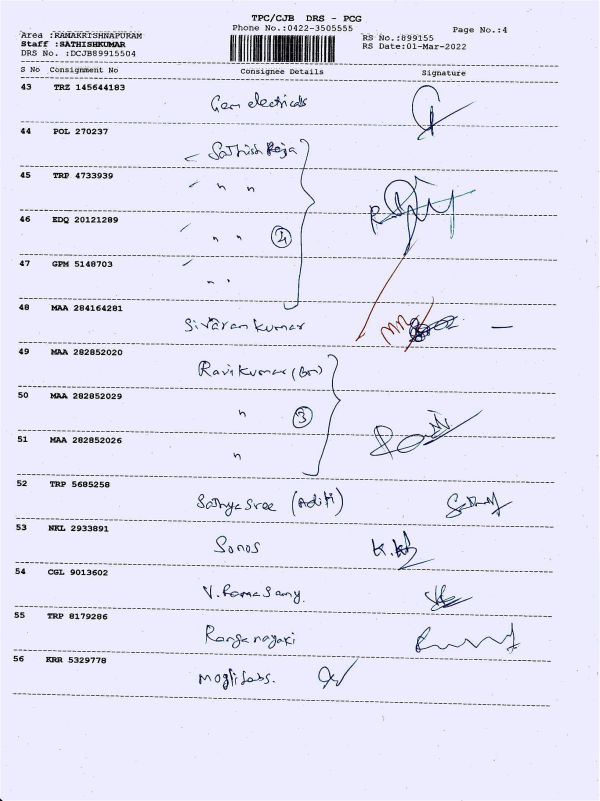 TPC/CJB DRS - PCG
Phone No.:0422-3505555 Page No.:4
Area :RAMAKRISHNAPURAM RS No.:899155
Staff :SATHISHKUMAR RS Date:01-Mar-2022
DRS No. :DCJB89915504
S No Consignment No Consignee Details Signature
43 TRZ 145644183
Gem electricals
44 POL 270237
Sathish Reja
45 TRP 4733939
" "
46 EDQ 20121289
" " 4
47 GPM 5148703
" "
48 MAA 284164281
Sivaram kumar
49 MAA 282852020
Ravikumar (Bri)
50 MAA 282852029
" 3
51 MAA 282852026
"
52 TRP 5685258
Sathya Sree (Aditi)
53 NKL 2933891
Sonos
54 CGL 9013602
V. Ramasamy.
55 TRP 8179286
Ranganayaki
56 KRR 5329778
Moglilabs.